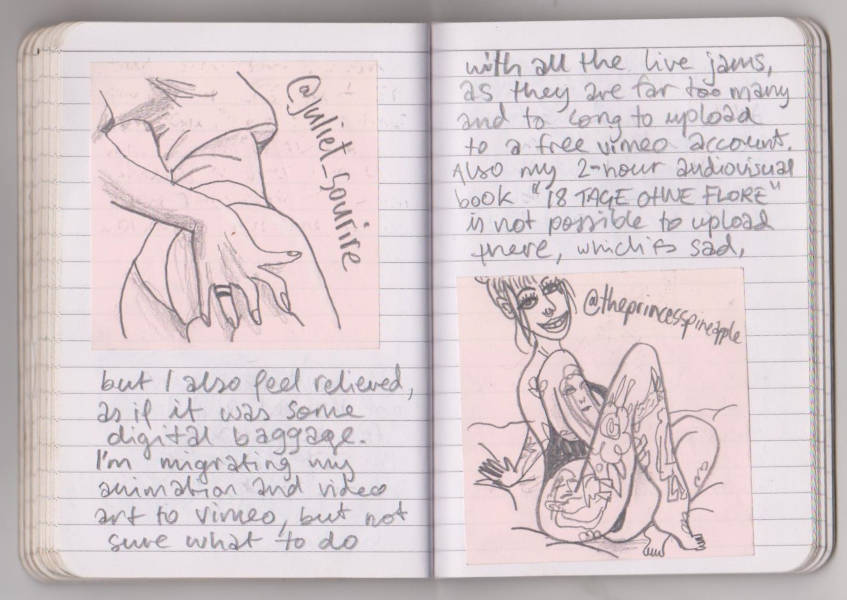 @juliet_sourire
but I also feel relieved,
as if it was some
digital baggage.
I'm migrating my
animation and video
art to vimeo, but not
sure what to do
with all the live jams,
as they are far too many
and to long to upload
to a free vimeo account.
Also my 2-hour audiovisual
book "18 TAGE OHNE FLORE"
is not possible to upload
there, which is sad,
@theprincesspineapple